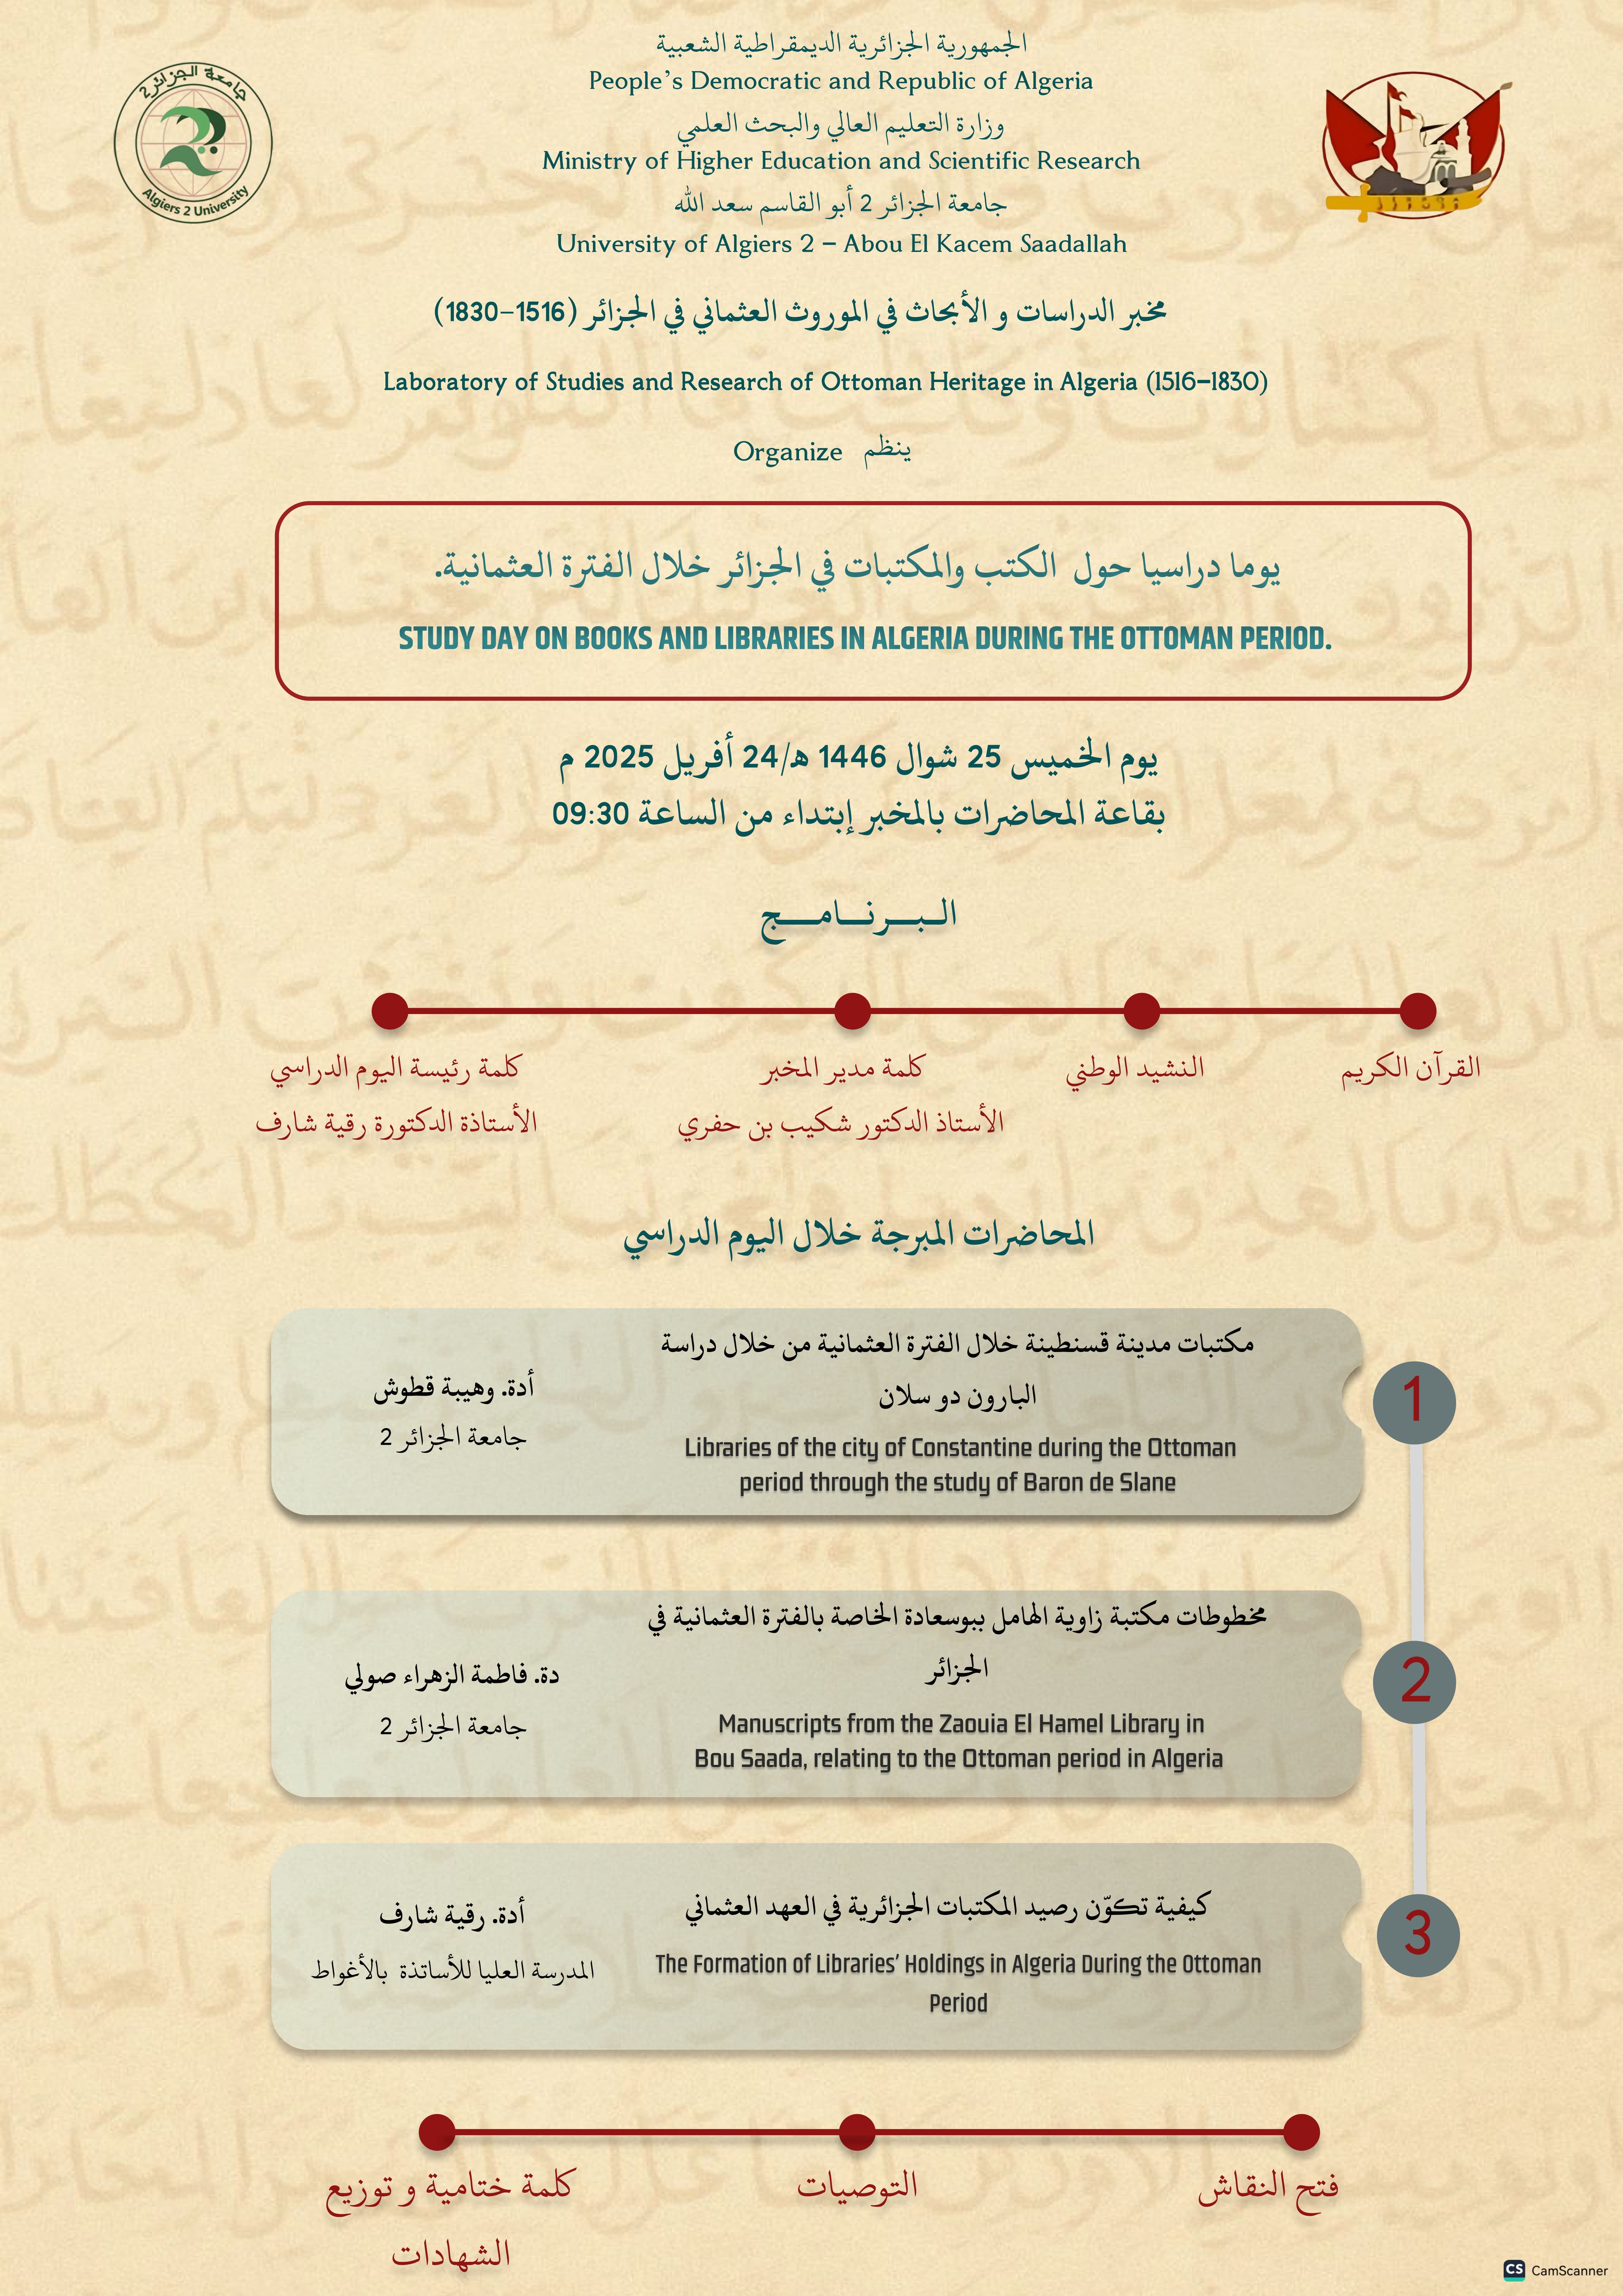 جامعة الجزائر 2
Algiers 2 University
الجمهورية الجزائرية الديمقراطية الشعبية
People's Democratic and Republic of Algeria
وزارة التعليم العالي والبحث العلمي
Ministry of Higher Education and Scientific Research
جامعة الجزائر 2 أبو القاسم سعد الله
University of Algiers 2 – Abou El Kacem Saadallah
مخبر الدراسات و الأبحاث في الموروث العثماني في الجزائر (1516-1830)
Laboratory of Studies and Research of Ottoman Heritage in Algeria (1516-1830)
ينظم Organize
يوما دراسيا حول الكتب والمكتبات في الجزائر خلال الفترة العثمانية.
STUDY DAY ON BOOKS AND LIBRARIES IN ALGERIA DURING THE OTTOMAN PERIOD.
يوم الخميس 25 شوال 1446 هـ/24 أفريل 2025 م
بقاعة المحاضرات بالمخبر إبتداء من الساعة 09:30
الـبـــرنـــامـــج
القرآن الكريم
النشيد الوطني
كلمة مدير المخبر
الأستاذ الدكتور شكيب بن حفري
كلمة رئيسة اليوم الدراسي
الأستاذة الدكتورة رقية شارف
المحاضرات المبرجة خلال اليوم الدراسي
1
مكتبات مدينة قسنطينة خلال الفترة العثمانية من خلال دراسة
البارون دو سلان
Libraries of the city of Constantine during the Ottoman
period through the study of Baron de Slane
أدة. وهيبة قطوش
جامعة الجزائر 2
2
مخطوطات مكتبة زاوية الهامل ببوسعادة الخاصة بالفترة العثمانية في
الجزائر
Manuscripts from the Zaouia El Hamel Library in
Bou Saada, relating to the Ottoman period in Algeria
دة. فاطمة الزهراء صولي
جامعة الجزائر 2
3
كيفية تكوّن رصيد المكتبات الجزائرية في العهد العثماني
The Formation of Libraries' Holdings in Algeria During the Ottoman
Period
أدة. رقية شارف
المدرسة العليا للأساتذة بالأغواط
فتح النقاش
التوصيات
كلمة ختامية و توزيع
الشهادات
CS CamScanner